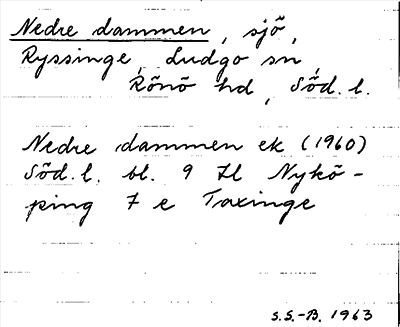 Nedre dammen, sjö,
Ryssinge, Ludgo sn,
Rönö hd, Söd. l.
Nedre dammen ek (1960)
Söd. l. bl. 9 H Nykö-
ping 7 e Taxinge
S.S.-B. 1963